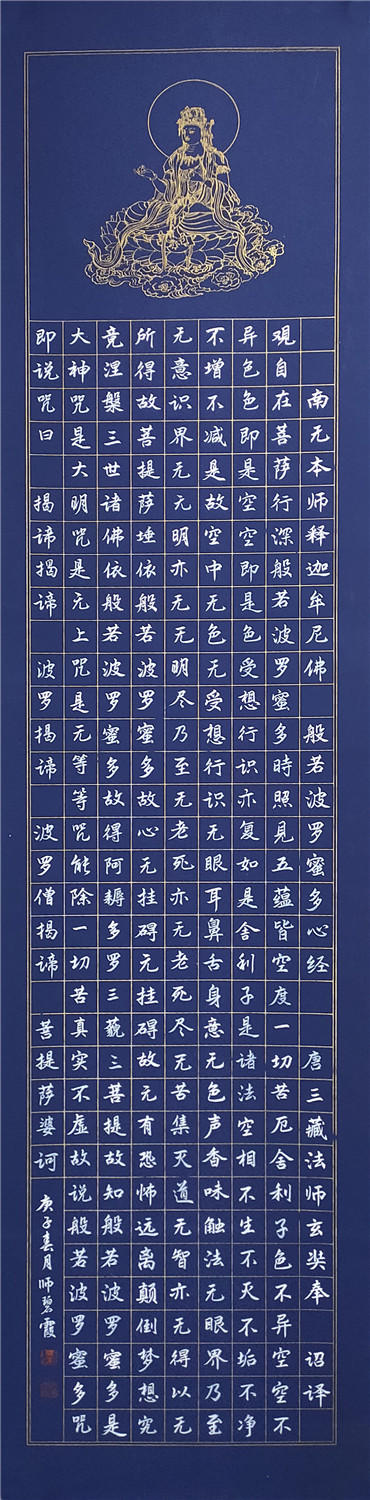 南无本师释迦牟尼佛 般若波罗蜜多心经 唐三藏法师玄奘奉 诏译
觀自在菩萨行深般若波罗蜜多時照見五蕴皆空度一切苦厄舍利子色不异空空不
异色色即是空空即是色受想行识亦复如是舍利子是诸法空相不生不灭不垢不净
不增不减是故空中无色无受想行识无眼耳鼻舌身意无色声香味触法无眼界乃至
无意识界无无明亦无无明尽乃至无老死亦无老死尽无苦集灭道无智亦无得以无
所得故菩提萨埵依般若波罗蜜多故心无挂碍无挂碍故无有恐怖远离颠倒梦想究
竟涅槃三世诸佛依般若波罗蜜多故得阿耨多罗三藐三菩提故知般若波罗蜜多是
大神咒是大明咒是无上咒是无等等咒能除一切苦真实不虚故说般若波罗蜜多咒
即说咒曰 揭谛揭谛 波罗揭谛 波罗僧揭谛 菩提萨婆诃
庚子春月师碧霞